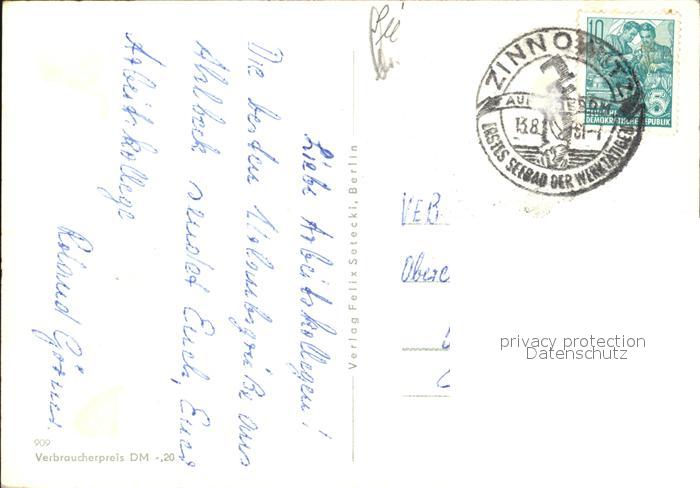 Liebe Arbeitskollegen!
Die besten Urlaubsgrüße aus
Ahlbeck sendet Euch, Euer
Arbeitskollege
Roland
909
Verbraucherpreis DM -,20
Verlag Felix Setecki, Berlin
ZINNOWITZ
AUF
13.8. 61-7
ERSTES SEEBAD DER WERKTÄTIGEN
10
DEMOKRATISCHE REPUBLIK
VEB
privacy protection
Datenschutz